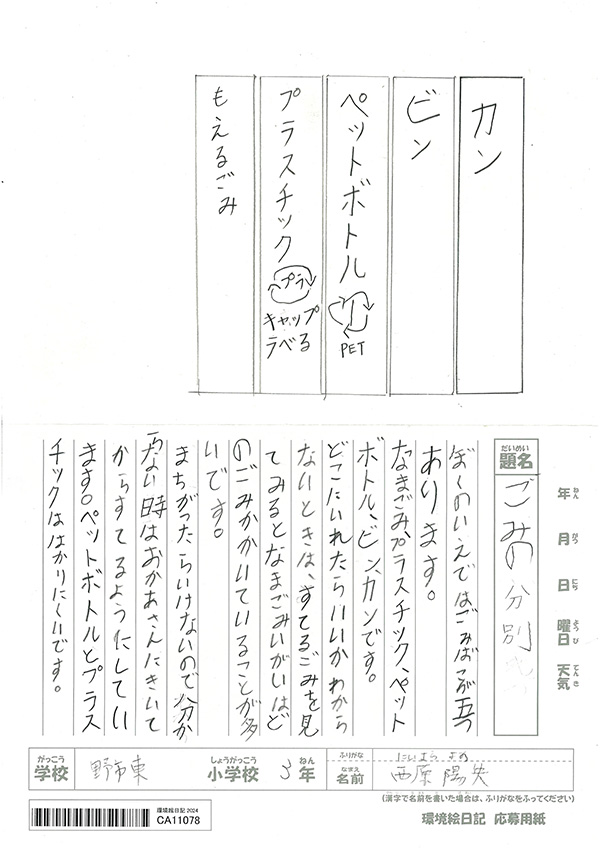 カン
ビン
ペットボトル
1
PET
プラスチック
プラ
キャップ
ラベる
もえるごみ
年 ねん
月 がつ
日 にち
曜日 ようび
天気 てんき
題名 だいめい
ごみの分別
ぼくのいえではごみばこが五つ
あります。
なまごみ、プラスチック、ペット
ボトル、ビン、カンです。
どこにいれたらいいかわから
ないときは、すてるごみを見
てみるとなまごみいがいはど
のごみかかいていることが多
いです。
まちがったらいけないので分か
らない時はおかあさんにきいて
からすてるようにしてい
ます。ペットボトルとプラス
チックははかりにくいです。
学校 がっこう
野市東
小学校 しょうがっこう
3年 ねん
ふりがな
名前 なまえ
西原陽
(漢字で名前を書いた場合は、ふりがなをふってください)
環境絵日記2024
CA11078
環境絵日記 応募用紙